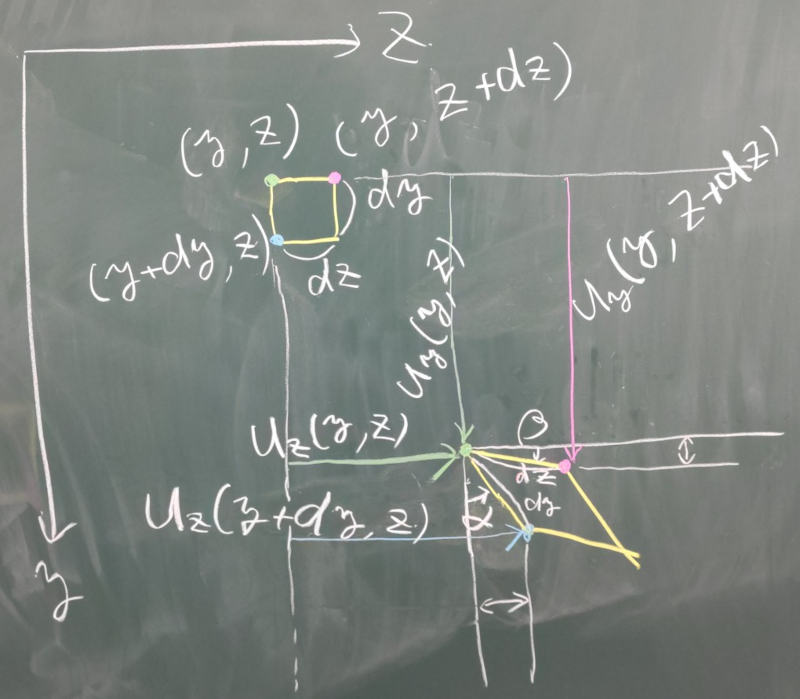 Z
(y, z) (y, z+dz)
dy
(y+dy, z)
dz
u_y(y, z)
u_y(y, z+dz)
u_z(y, z)
β
dz
u_z(y+dy, z)
α
dy
y